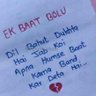 EK BAAT BOLU
Dil Bahut Dukhta
Hai Jab Koi
Apna Humse Baat
Karna Band
Kar Deta Hai..